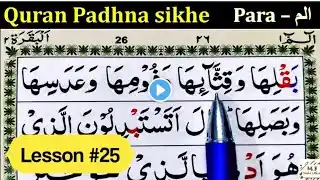 Quran Padhna sikhe Para – الم
الٓمّٓ ١ ٢٦ 26 اَلْبَقَرَة ٢
بَقْلِهَا وَقِثَّآئِهَا وَفُوْمِهَا وَعَدَسِهَا
وَبَصَلِهَا قَالَ اَتَسْتَبْدِلُوْنَ الَّذِىْ
هُوَ بِالَّذِىْ
Lesson #25